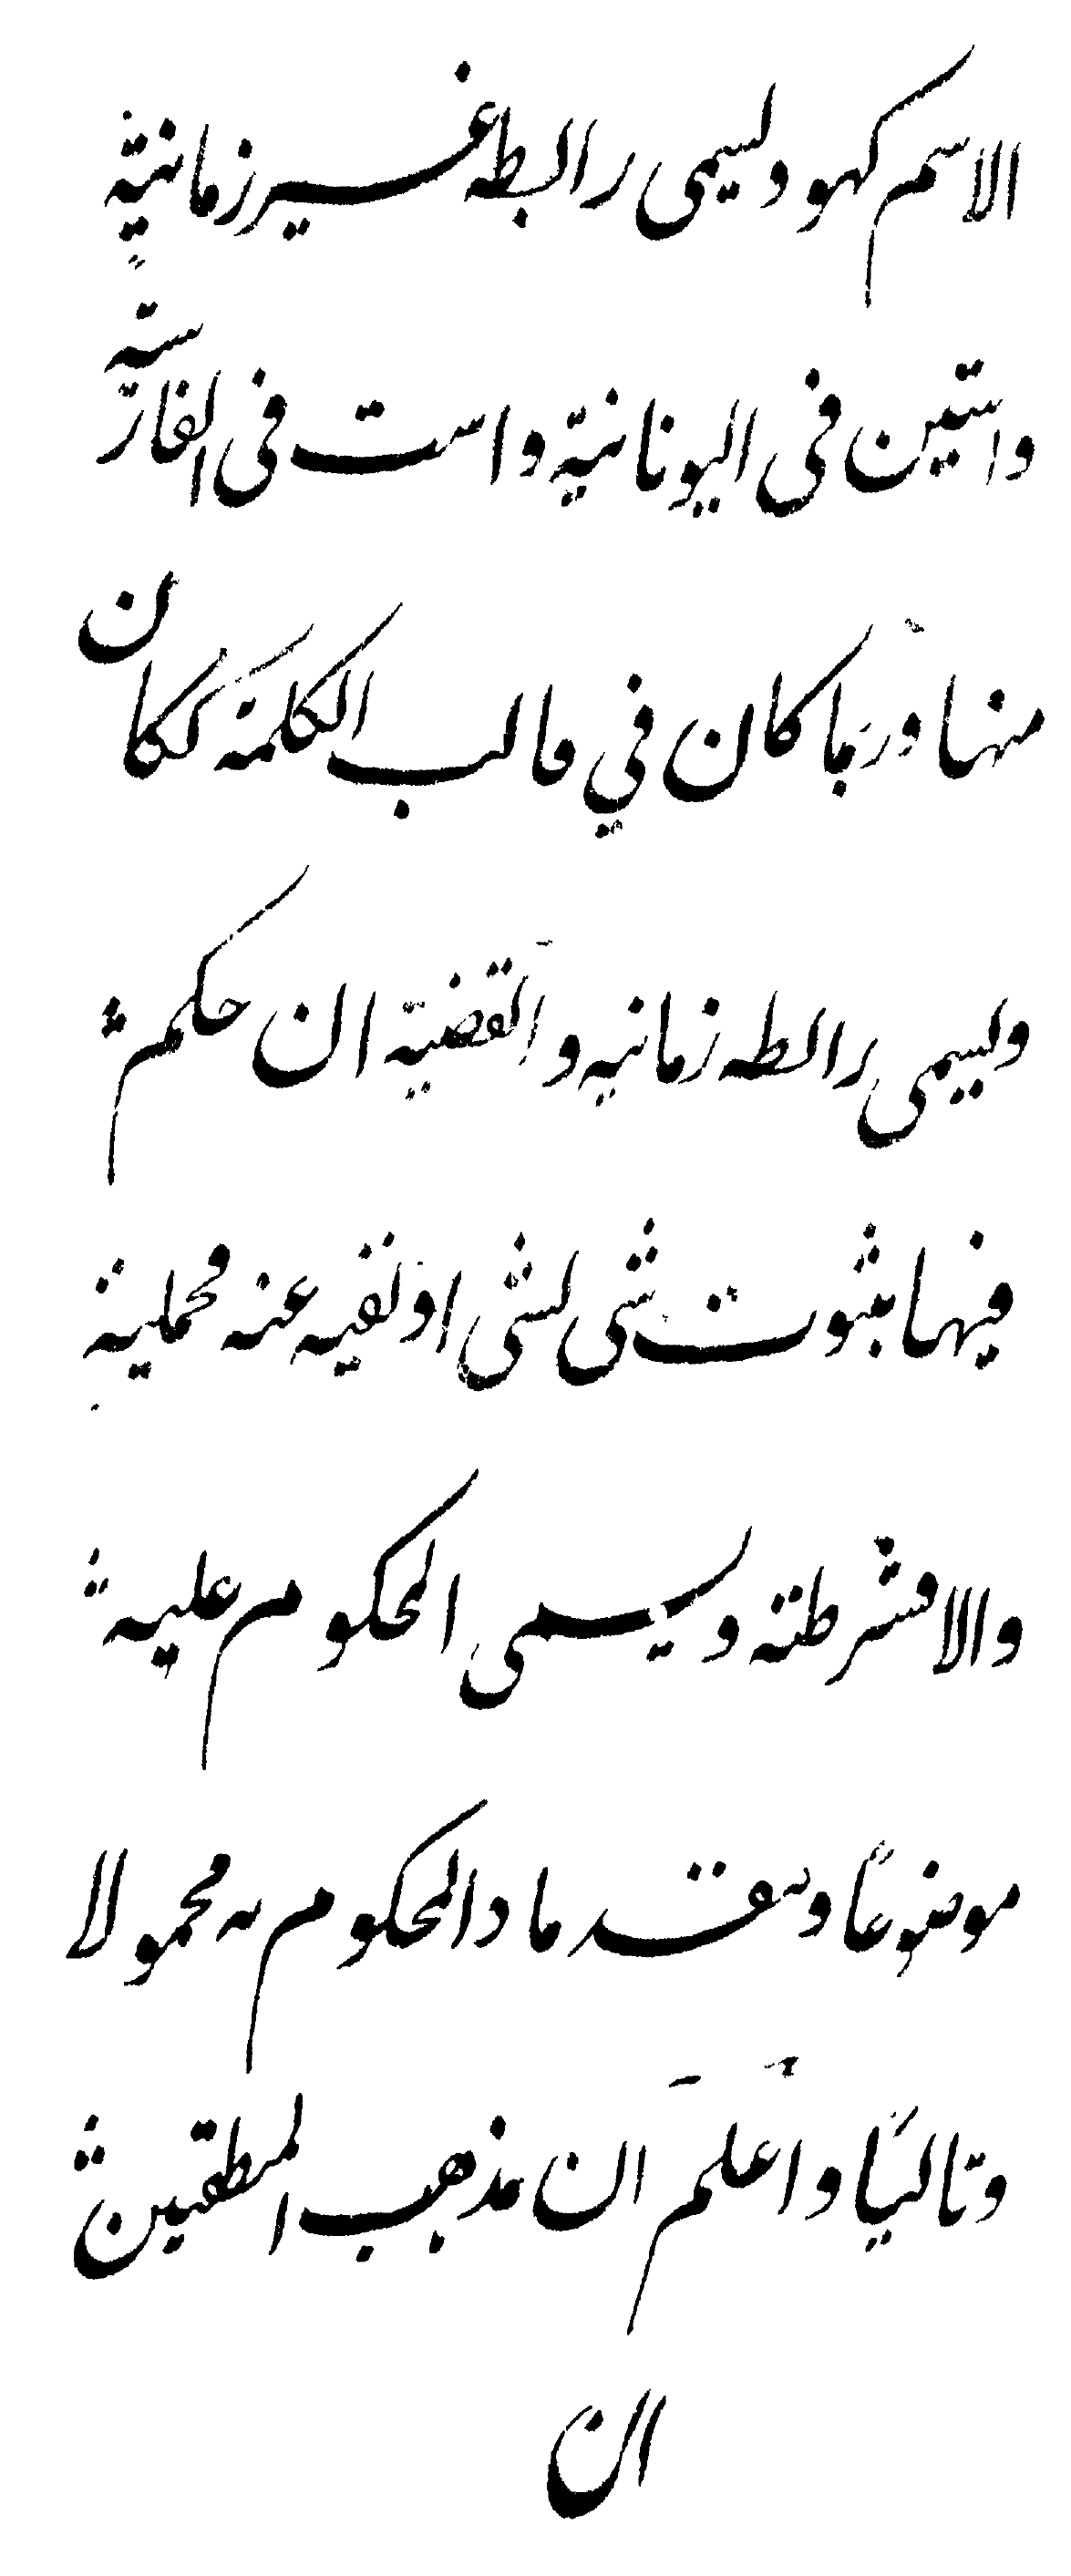 الاسم كهو وليسمى رابطه غير زمانية
واستين فى اليونانية واست فى الفارسية
منها وربما كان في قالب الكلمة ككان
وليسمى رابطه زمانيه والقضية ان حكم
فيها بثبوت شى لشى او نفيه عنه فحملية
والا فشرطية ويسمى المحكوم عليه
موضوعًا ومقدما والمحكوم به محمولا
وتاليًا واعلم ان مذهب المنطقيين
ان